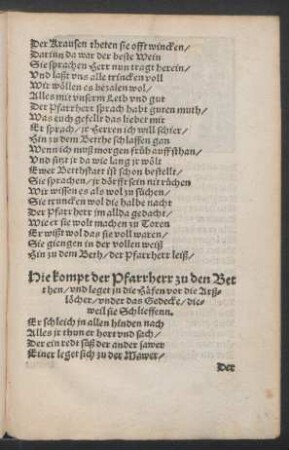 Der Krausen theten sie offt wincken/
Dariñ da war der beste Wein
Sie sprachen Herr nun tragt herein/
Vnd laßt vns alle trincken voll
Wir wöllen es bezalen wol/
Alles mit vnserm Leib vnd gut
Der Pfarrherr sprach habt guten muth/
Was euch gefellt das lieber mir
Er sprach/ jr Herren ich will schier/
Hin zu dem Betthe schlaffen gan
Wenn ich muß morgen früh auffsthan/
Vnd sitzt jr da wie lang jr wölt
Ewer Betthstatt ist schon bestellt/
Sie sprachen/ jr dörfft sein nit rüchen
Wir wissen es als wol zu süchen/
Sie truncken wol die halbe nacht
Der Pfarrherr im allda gedacht/
Wie er sie wolt machen zu Toren
Er wißt wol das sie voll waren/
Sie giengen in der vollen weiß
Hin zu dem Beth/ der Pfarrherr leiß/
Hie kompt der Pfarrherr zu den Bet
then/ vnd leget in die Häfen vor die Arß-
löcher/ vnder das Gedecke/ die-
weil sie Schlieffenn.
Er schleich in allen hinden nach
Alles jr thun er hort vnd sach/
Der ein redt süß der ander sawer
Einer leget sich zu der Mawer/
Der